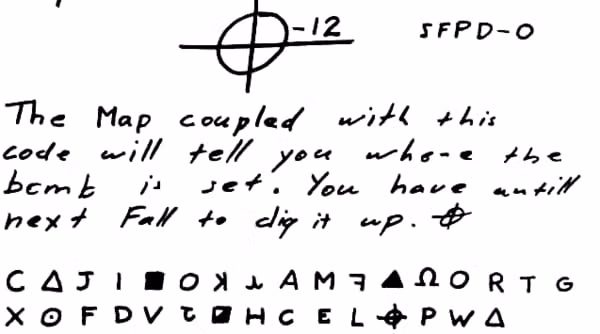 -12 SFPD-0
The Map coupled with this
code will tell you where the
bomb is set. You have untill
next Fall to dig it up. ⌖
C Δ J I ■ O ꓘ ⅄ A M ꟻ ▲ Ω O R T G
X ⊙ F D V Ʇ ◪ H C E L ⌖ P W Δ